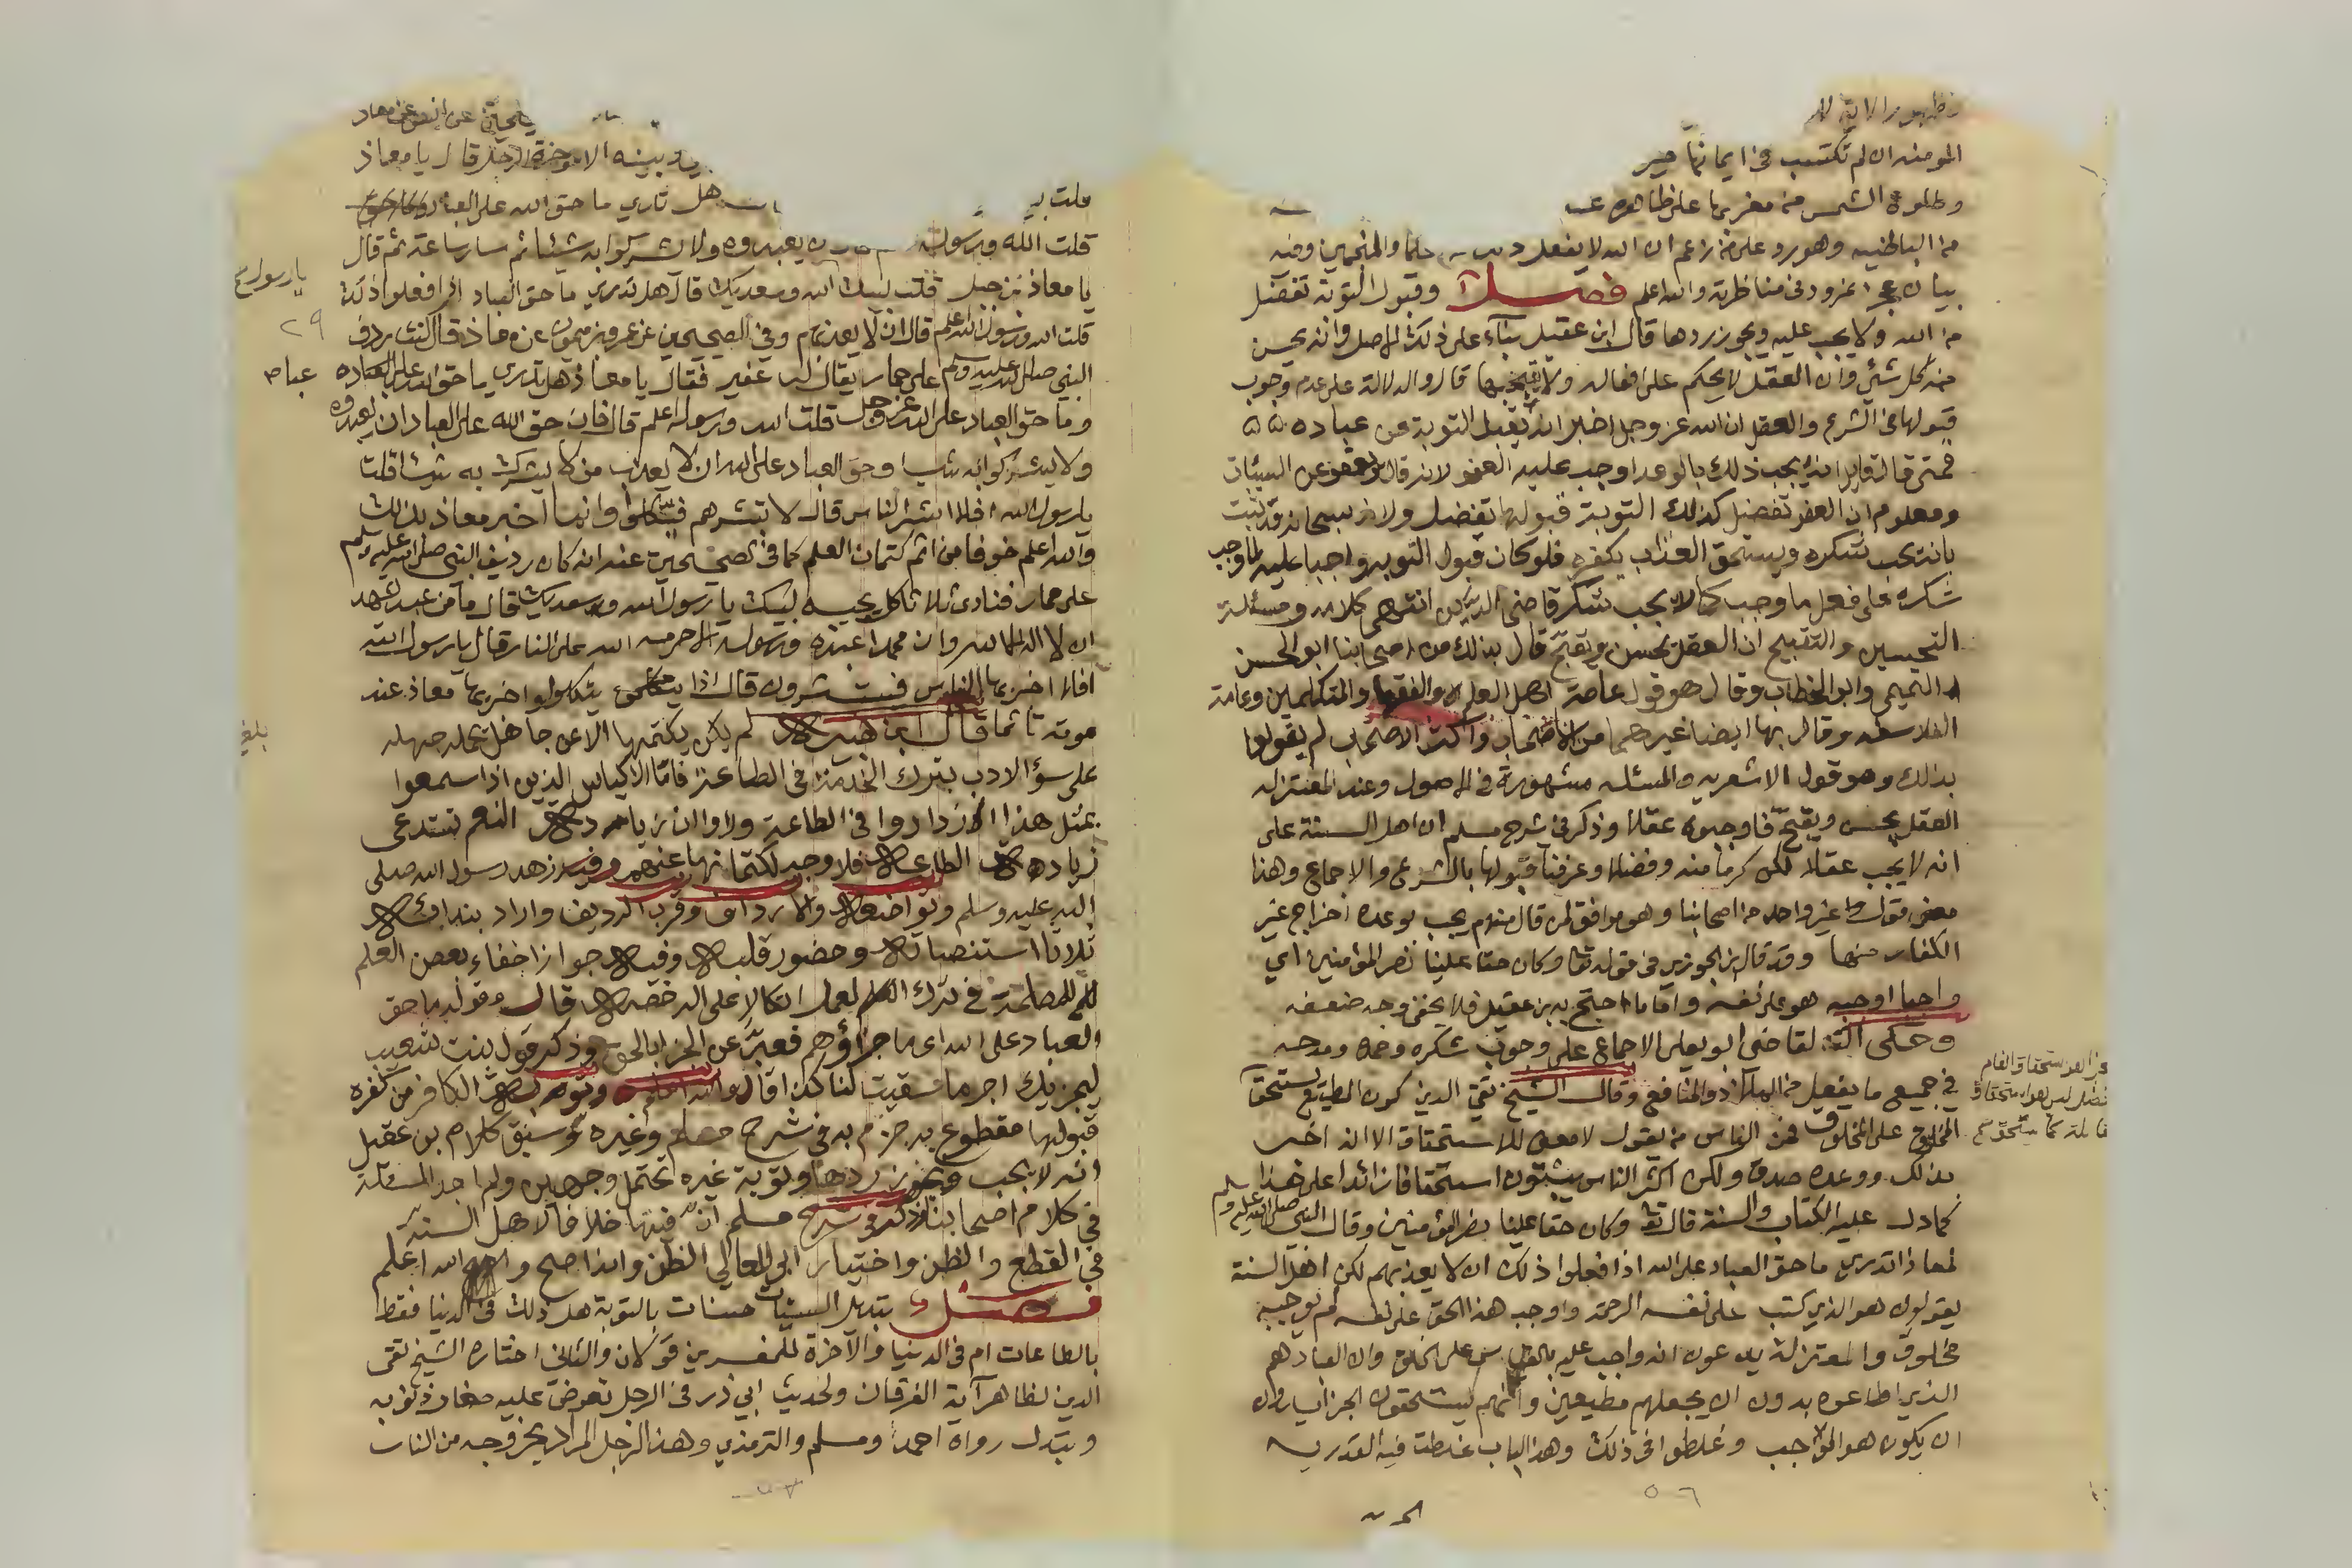 المومنه ان لم تكتسب في ايمانها خير
وطلوع الشمس من مغربها على ظاهره
من الباطنيه وهو يرد على من زعم ان الله لا يفعل والمنجمين وفيه
بيان عجز نمرود في مناظرته والله اعلم فصل وقبول التوبة تفضل
من الله ولا يجب عليه ويجوز ردها قال ابن عقيل بناء على ذلك الاصل وانه يحسن
منه كل شئ وان العقل لا يحكم على افعاله ولا يقبحها قال والدلالة على عدم وجوب
قبولها في الشرع والعقل ان الله عز وجل اخبر انه يقبل التوبة عن عباده
فمتى قال قايل انه يجب ذلك بالوعد اوجب عليه العفو لانه قال ويعفو عن السيئات
ومعلوم ان العفو تفضل كذلك التوبة قبولها تفضل ولانه سبحانه قد ثبت
بانه يجب شكره ويستحق العذاب بكفره فلو كان قبول التوبه واجبا عليه لما وجب
شكره على فعل ما وجب كما لا يجب شكر قاضي الدين انتهى كلامه ومسئلة
التحسين والتقبيح ان العقل يحسن ويقبح قال بذلك من اصحابنا ابو الحسن
التميمي وابو الخطاب وقال هو قول عامة اهل العلم والفقها والمتكلمين وعامة
الفلاسفه وقال بها ايضا غيرهما من الاصحاب واكثر الاصحاب لم يقولوا
بذلك وهو قول الاشعريه والمسئله مشهورة في الاصول وعند المعتزله
العقل يحسن ويقبح فاوجبوه عقلا وذكر في شرح مسلم ان اهل السنة على
انه لا يجب عقلا لكن كرما منه وفضلا وعرفنا قبولها بالشرع والاجماع وهذا
معنى قول غير واحد من اصحابنا وهو موافق لمن قال منهم يجب بوعده اخراج غير
الكفار منها وقد قال ابن الجوزي في قوله تعا وكان حقا علينا نصر المؤمنين اي
واجبا اوجبه هو على نفسه واما ما احتج به بن عقيل فلا يخفى وجه ضعفه
وحكى القاضي ابو يعلى الاجماع على وجوب شكره وحمده ومدحه
في جميع ما يفعل من الملاذ والمنافع وقال الشيخ تقي الدين كون المطيع يستحق
المخلوق على المخلوق فمن الناس من يقول لا معنى للاستحقاق الا انه اخبر
بذلك ووعده صدق ولكن اكثر الناس يثبتون استحقاقا زائدا على هذا
كما دل عليه الكتاب والسنة قال تعا وكان حقا علينا نصر المؤمنين وقال النبي صلى الله عليه وسلم
لمعاذ اتدري ما حق العباد على الله اذا فعلوا ذلك ان لا يعذبهم لكن اهل السنة
يقولون هو الذي كتب على نفسه الرحمة واوجب هذا الحق على نفسه لم يوجبه
مخلوق والمعتزلة يدعون انه واجب عليه بالقياس على الخلق وان العباد هم
الذي اطاعوه بدون ان يجعلهم مطيعين وانهم يستحقون الجزا بدون
ان يكون هو الموجب وغلطوا في ذلك وهذا الباب غلطت فيه القدريه
٥٦
عن انس عن معاذ
بينه الا موخرة الرحل قال يا معاذ
قلت هل تدري ما حق الله على العباد
قلت الله ورسوله يعبدوه ولا يشركوا به شيئا ثم سار ساعة ثم قال
يا معاذ بن جبل قلت لبيك الله وسعديك قال هل تدري ما حق العباد اذا فعلوا ذلك
قلت الله ورسوله اعلم قال ان لا يعذبهم وفي الصحيحين عن عمرو بن ميمون عن معاذ قال كنت ردف
النبي صلى الله عليه وسلم على حمار يقال له عفير فقال يا معاذ هل تدري ما حق الله على عباده
وما حق العباد على الله عز وجل قلت الله ورسوله اعلم قال فان حق الله على العباد ان يعبدوه
ولا يشركوا به شيا وحق العباد على الله ان لا يعذب من لا يشرك به شيئا قلت
يا رسول الله افلا ابشر الناس قال لا تبشرهم فيتكلوا وانما اخبر معاذ بذلك
والله اعلم خوفا من اثم كتمان العلم كما في الصحيحين عنه انه كان رديف النبي صلى الله عليه وسلم
على حمار فنادى ثلاثا كل يجيبه لبيك يا رسول الله وسعديك قال ما من عبد شهد
ان لا اله الا الله وان محمدا عبده ورسوله الا حرمه الله على النار قال يا رسول الله
افلا اخبر بها الناس فيستبشرون قال اذا يتكلوا اخبر بها معاذ عند
موته تاثما قال ابن هبيرة لم يكن يكتمها الا عن جاهل يحمله جهله
على سؤ الادب بترك الخدمة في الطاعة فاما الاكياس الذين اذا سمعوا
بمثل هذا ازدادوا في الطاعة وراوا ان زيادة النعم تستدعي
زيادة الطاعة فلا وجه لكتمانها عنهم وفيه زهد رسول الله صلى
الله عليه وسلم وتواضعه والارداف وقرب الرديف واراد بندائه
ثلاثا استنصاته وحضور قلبه وفيه جواز اخفاء بعض العلم
للمصلحة في ترك العمل اتكالا على الرخصة قال وقوله ما حق
العباد على الله اي ما جزاؤهم فعبر عن الجزا بالحق وذكر قول بنت شعيب
ليجزيك اجر ما سقيت لنا كذا قال والله اعلم وتوبة الكافر من كفره
قبولها مقطوع به جزم به في شرح مسلم وغيره وسبق كلام بن عقيل
انه لا يجب ويجوز ردها وتوبة غيره تحتمل وجهين ولم اجد المسئلة
في كلام اصحابنا وذكر في شرح مسلم ان فيها خلافا لاهل السنة
في القطع والظن واختيار ابو المعالي الظن وانه اصح والله اعلم
فصل تبديل السيئات حسنات بالتوبة هل ذلك في الدنيا فقط
بالطاعات ام في الدنيا والآخرة للمفسرين قولان والثاني اختاره الشيخ تقي
الدين لظاهر آية الفرقان ولحديث ابي ذر في الرجل تعرض عليه صغار ذنوبه
وتبدل رواه احمد ومسلم والترمذي وهذا الرجل المراد بخروجه من النار